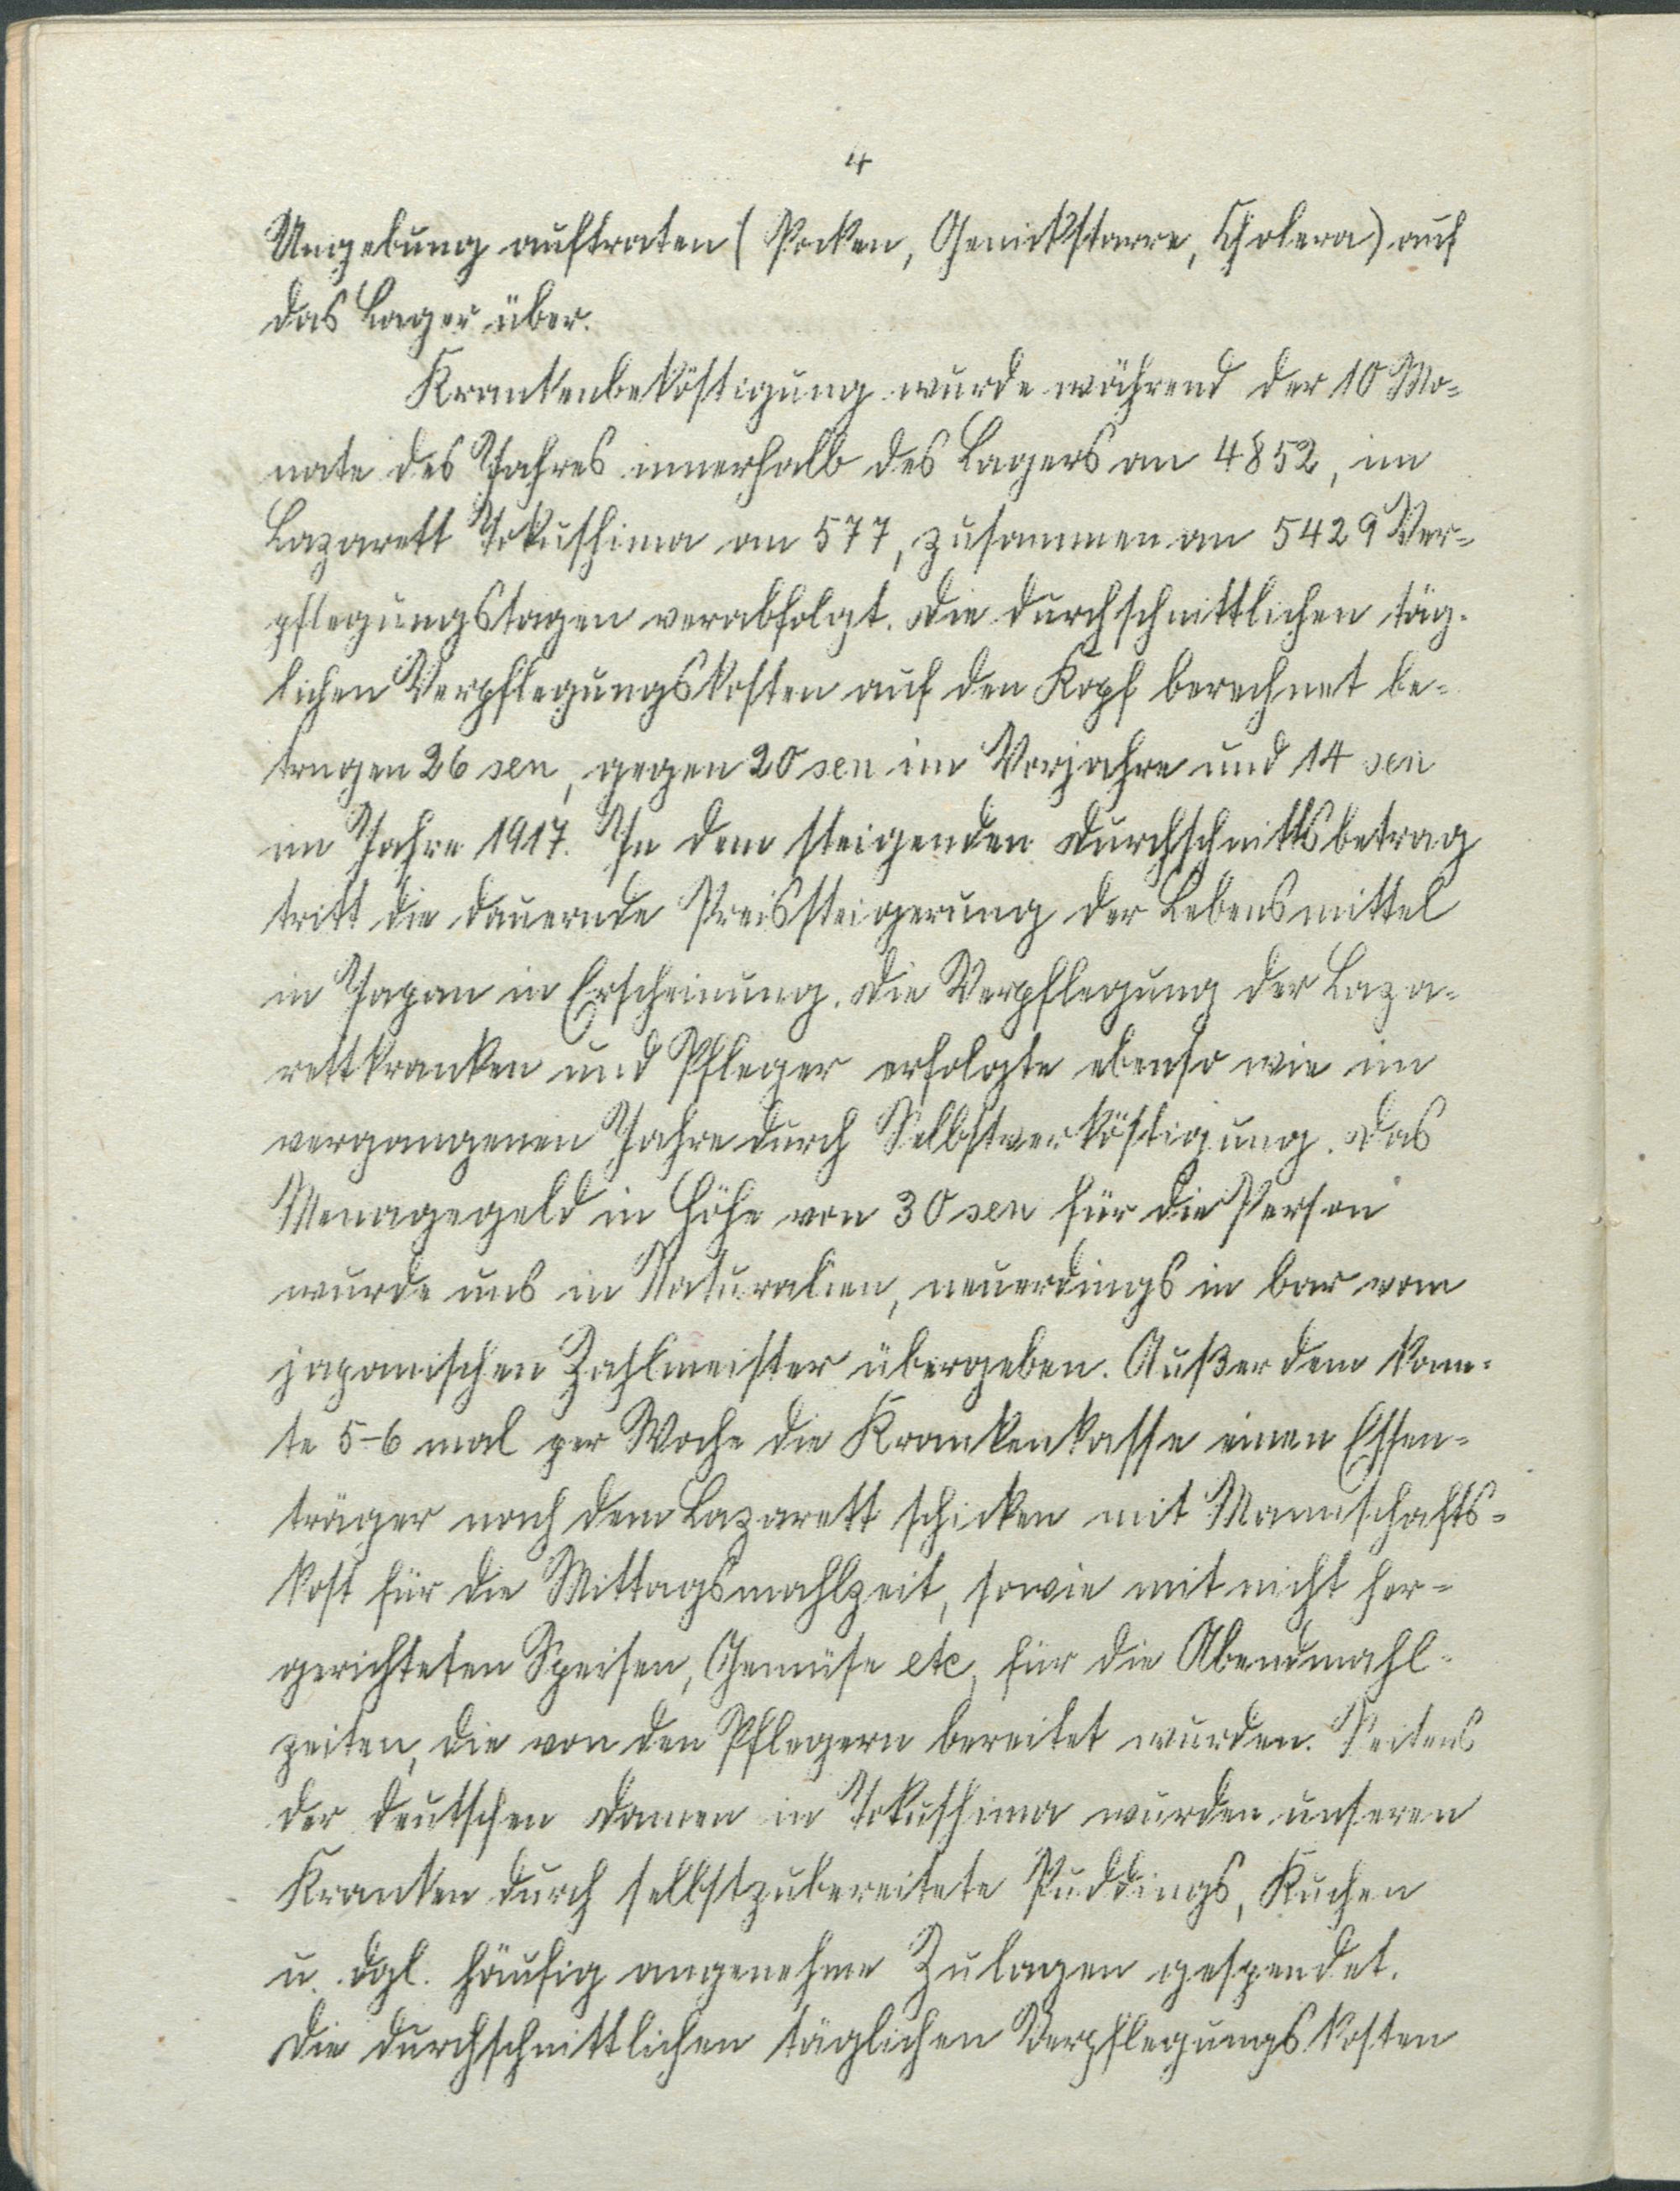 4
Umgebung auftraten (Pocken, Genickstarre, Cholera) auf
das Lager über.
Krankenbeköstigung wurde während der 10 Mo-
nate des Jahres innerhalb des Lagers an 4852, im
Lazarett Tokushima an 577, zusammen an 5429 Ver-
pflegungstagen verabfolgt. Die durchschnittlichen täg-
lichen Verpflegungskosten auf den Kopf berechnet be-
trugen 26 sen, gegen 20 sen im Vorjahre und 14 sen
im Jahre 1917. In dem steigenden Durchschnittsbetrag
tritt die dauernde Preissteigerung der Lebensmittel
in Japan in Erscheinung. Die Verpflegung der Laza-
rettkranken und Pfleger erfolgte ebenso wie im
vergangenen Jahre durch Selbstverköstigung. Das
Menagegeld in Höhe von 30 sen für die Person
wurde uns in Naturalien, neuerdings in bar vom
japanischen Zahlmeister übergeben. Außerdem konn-
te 5-6 mal per Woche die Krankenkasse einen Essen-
träger nach dem Lazarett schicken mit Mannschafts-
kost für die Mittagsmahlzeit, sowie mit nicht her-
gerichteten Speisen, Gemüse etc, für die Abendmahl-
zeiten, die von den Pflegern bereitet wurden. Seitens
der deutschen Damen in Tokushima wurden unseren
Kranken durch selbstzubereitete Puddings, Kuchen
u. dgl. häufig angenehme Zulagen gespendet.
Die durchschnittlichen täglichen Verpflegungskosten